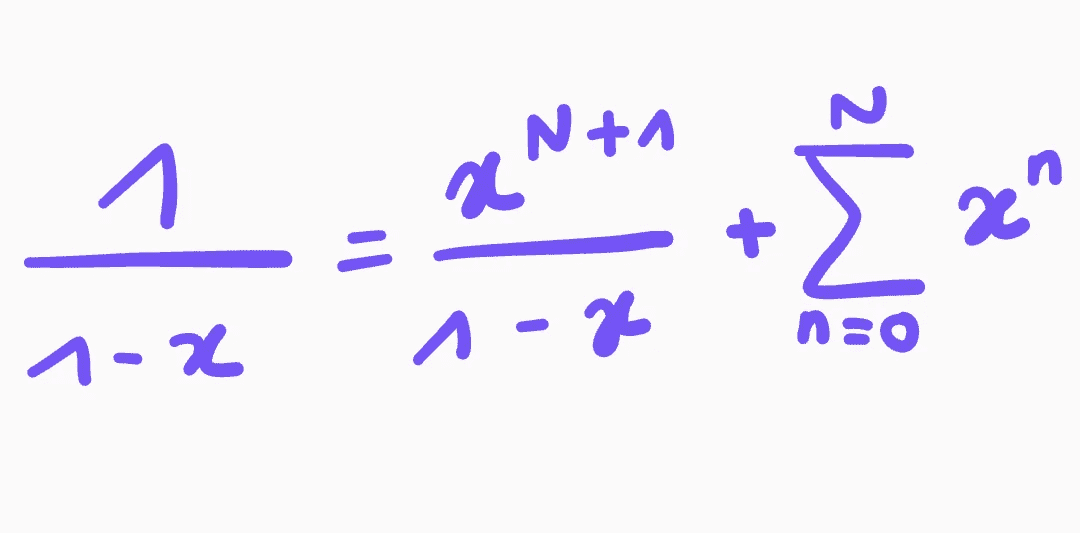 \frac{1}{1-x} = \frac{x^{N+1}}{1-x} + \sum_{n=0}^{N} x^n